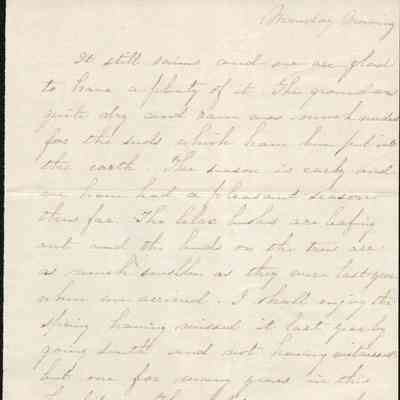 Monday Morning
It still rains and we are glad
to have a plenty of it. The ground was
quite dry and rain was much needed
for the seeds which have been put into
the earth. The season is early and
we have had a pleasant season
thus far. The lilac bushes are leafing
out and the buds on the trees are
as much swollen as they were last year
when we arrived. I shall enjoy the
spring having missed it last year by
going south and not having witnessed
but one for many years in this